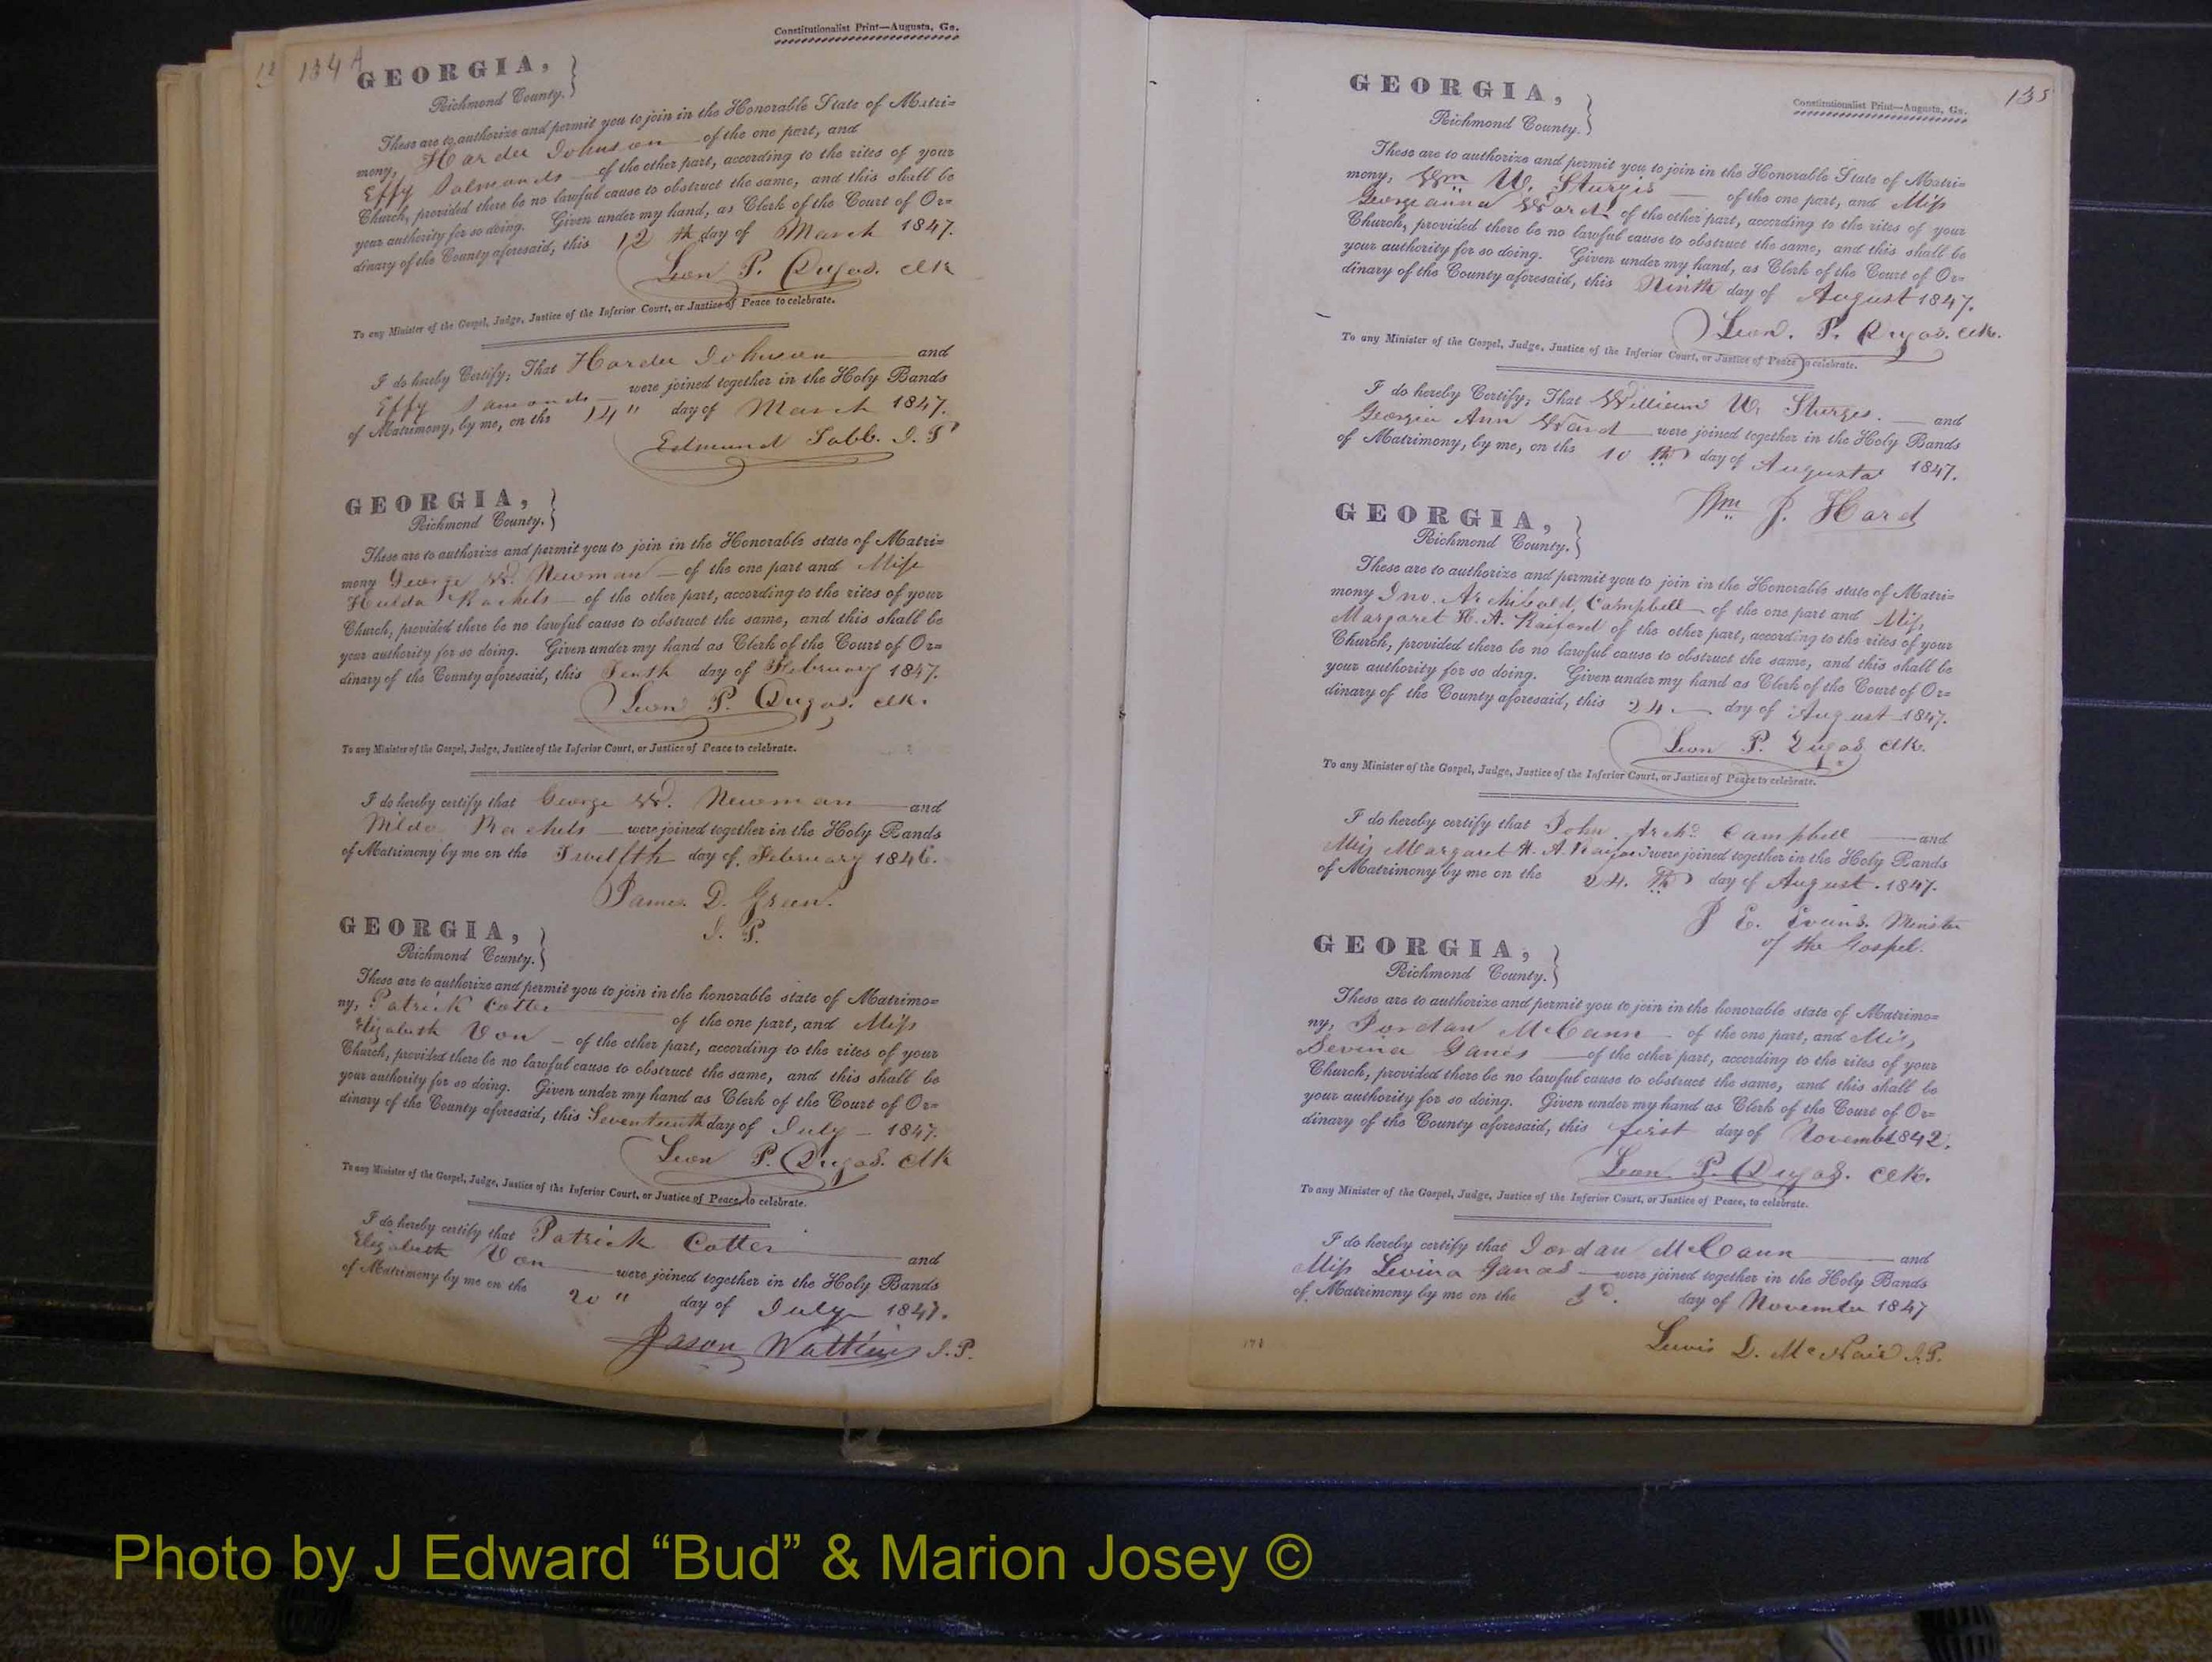 134A
Constitutionalist Print—Augusta, Ga.
GEORGIA,
Richmond County.
These are to authorize and permit you to join in the Honorable State of Matri=
mony, Harder Johnson of the one part, and
Effy Salmonds of the other part, according to the rites of your
Church, provided there be no lawful cause to obstruct the same, and this shall be
your authority for so doing. Given under my hand, as Clerk of the Court of Or=
dinary of the County aforesaid, this 12th day of March 1847.
Leon P. Dugas. Clk
To any Minister of the Gospel, Judge, Justice of the Inferior Court, or Justice of Peace to celebrate.
I do hereby Certify; That Harder Johnson and
Effy were joined together in the Holy Bands
of Matrimony, by me, on the 14" day of March 1847.
Edmund J.P
GEORGIA,
Richmond County.
These are to authorize and permit you to join in the Honorable state of Matri=
mony George W. Newman of the one part and Miss
Hulda Rachels of the other part, according to the rites of your
Church, provided there be no lawful cause to obstruct the same, and this shall be
your authority for so doing. Given under my hand as Clerk of the Court of Or=
dinary of the County aforesaid, this Tenth day of February 1847.
Leon P. Dugas. Clk.
To any Minister of the Gospel, Judge, Justice of the Inferior Court, or Justice of Peace to celebrate.
I do hereby certify that George W. Newman and
Rachels were joined together in the Holy Bands
of Matrimony by me on the Twelfth day of February 1846.
James D. Green.
J. P.
GEORGIA,
Richmond County.
These are to authorize and permit you to join in the honorable state of Matrimo=
ny, Patrick Cotter of the one part, and Miss
Elizabeth Von of the other part, according to the rites of your
Church, provided there be no lawful cause to obstruct the same, and this shall be
your authority for so doing. Given under my hand as Clerk of the Court of Or=
dinary of the County aforesaid, this Seventeenth day of July 1847.
Leon P. Dugas. Clk
To any Minister of the Gospel, Judge, Justice of the Inferior Court, or Justice of Peace, to celebrate.
I do hereby certify that Patrick Cotter and
Elizabeth Von were joined together in the Holy Bands
of Matrimony by me on the 20" day of July 1847.
Jason Watkins J.P.
135
Constitutionalist Print—Augusta, Ga.
GEORGIA,
Richmond County.
These are to authorize and permit you to join in the Honorable State of Matri=
mony, Wm W. Sturgis of the one part, and Miss
Georgeanna Ward of the other part, according to the rites of your
Church, provided there be no lawful cause to obstruct the same, and this shall be
your authority for so doing. Given under my hand, as Clerk of the Court of Or=
dinary of the County aforesaid, this Ninth day of August 1847.
Leon. P. Dugas. Clk.
To any Minister of the Gospel, Judge, Justice of the Inferior Court, or Justice of Peace to celebrate.
I do hereby Certify; That William W. Sturges. and
Georgia Ann Ward were joined together in the Holy Bands
of Matrimony, by me, on the 10th day of Augusta 1847.
Wm J. Hard
GEORGIA,
Richmond County.
These are to authorize and permit you to join in the Honorable state of Matri=
mony Jno. Archibald Campbell of the one part and Miss
Margaret H. A. Raiford of the other part, according to the rites of your
Church, provided there be no lawful cause to obstruct the same, and this shall be
your authority for so doing. Given under my hand as Clerk of the Court of Or=
dinary of the County aforesaid, this 24 day of August 1847.
Leon P. Dugas Clk.
To any Minister of the Gospel, Judge, Justice of the Inferior Court, or Justice of Peace to celebrate.
I do hereby certify that John Archd. Campbell and
Miss Margaret H. A. were joined together in the Holy Bands
of Matrimony by me on the 24.th day of August. 1847.
J E. Evans. Minister
of the Gospel.
GEORGIA,
Richmond County.
These are to authorize and permit you to join in the honorable state of Matrimo=
ny, Jordan McCann of the one part, and Miss
of the other part, according to the rites of your
Church, provided there be no lawful cause to obstruct the same, and this shall be
your authority for so doing. Given under my hand as Clerk of the Court of Or=
dinary of the County aforesaid, this first day of 1842.
Leon P. Dugas. Clk.
To any Minister of the Gospel, Judge, Justice of the Inferior Court, or Justice of Peace, to celebrate.
I do hereby certify that Jordan McCann and
Miss Levina Ganas were joined together in the Holy Bands
of Matrimony by me on the day of November 1847
Lewis D. McNair J.P.
Photo by J Edward “Bud” & Marion Josey ©